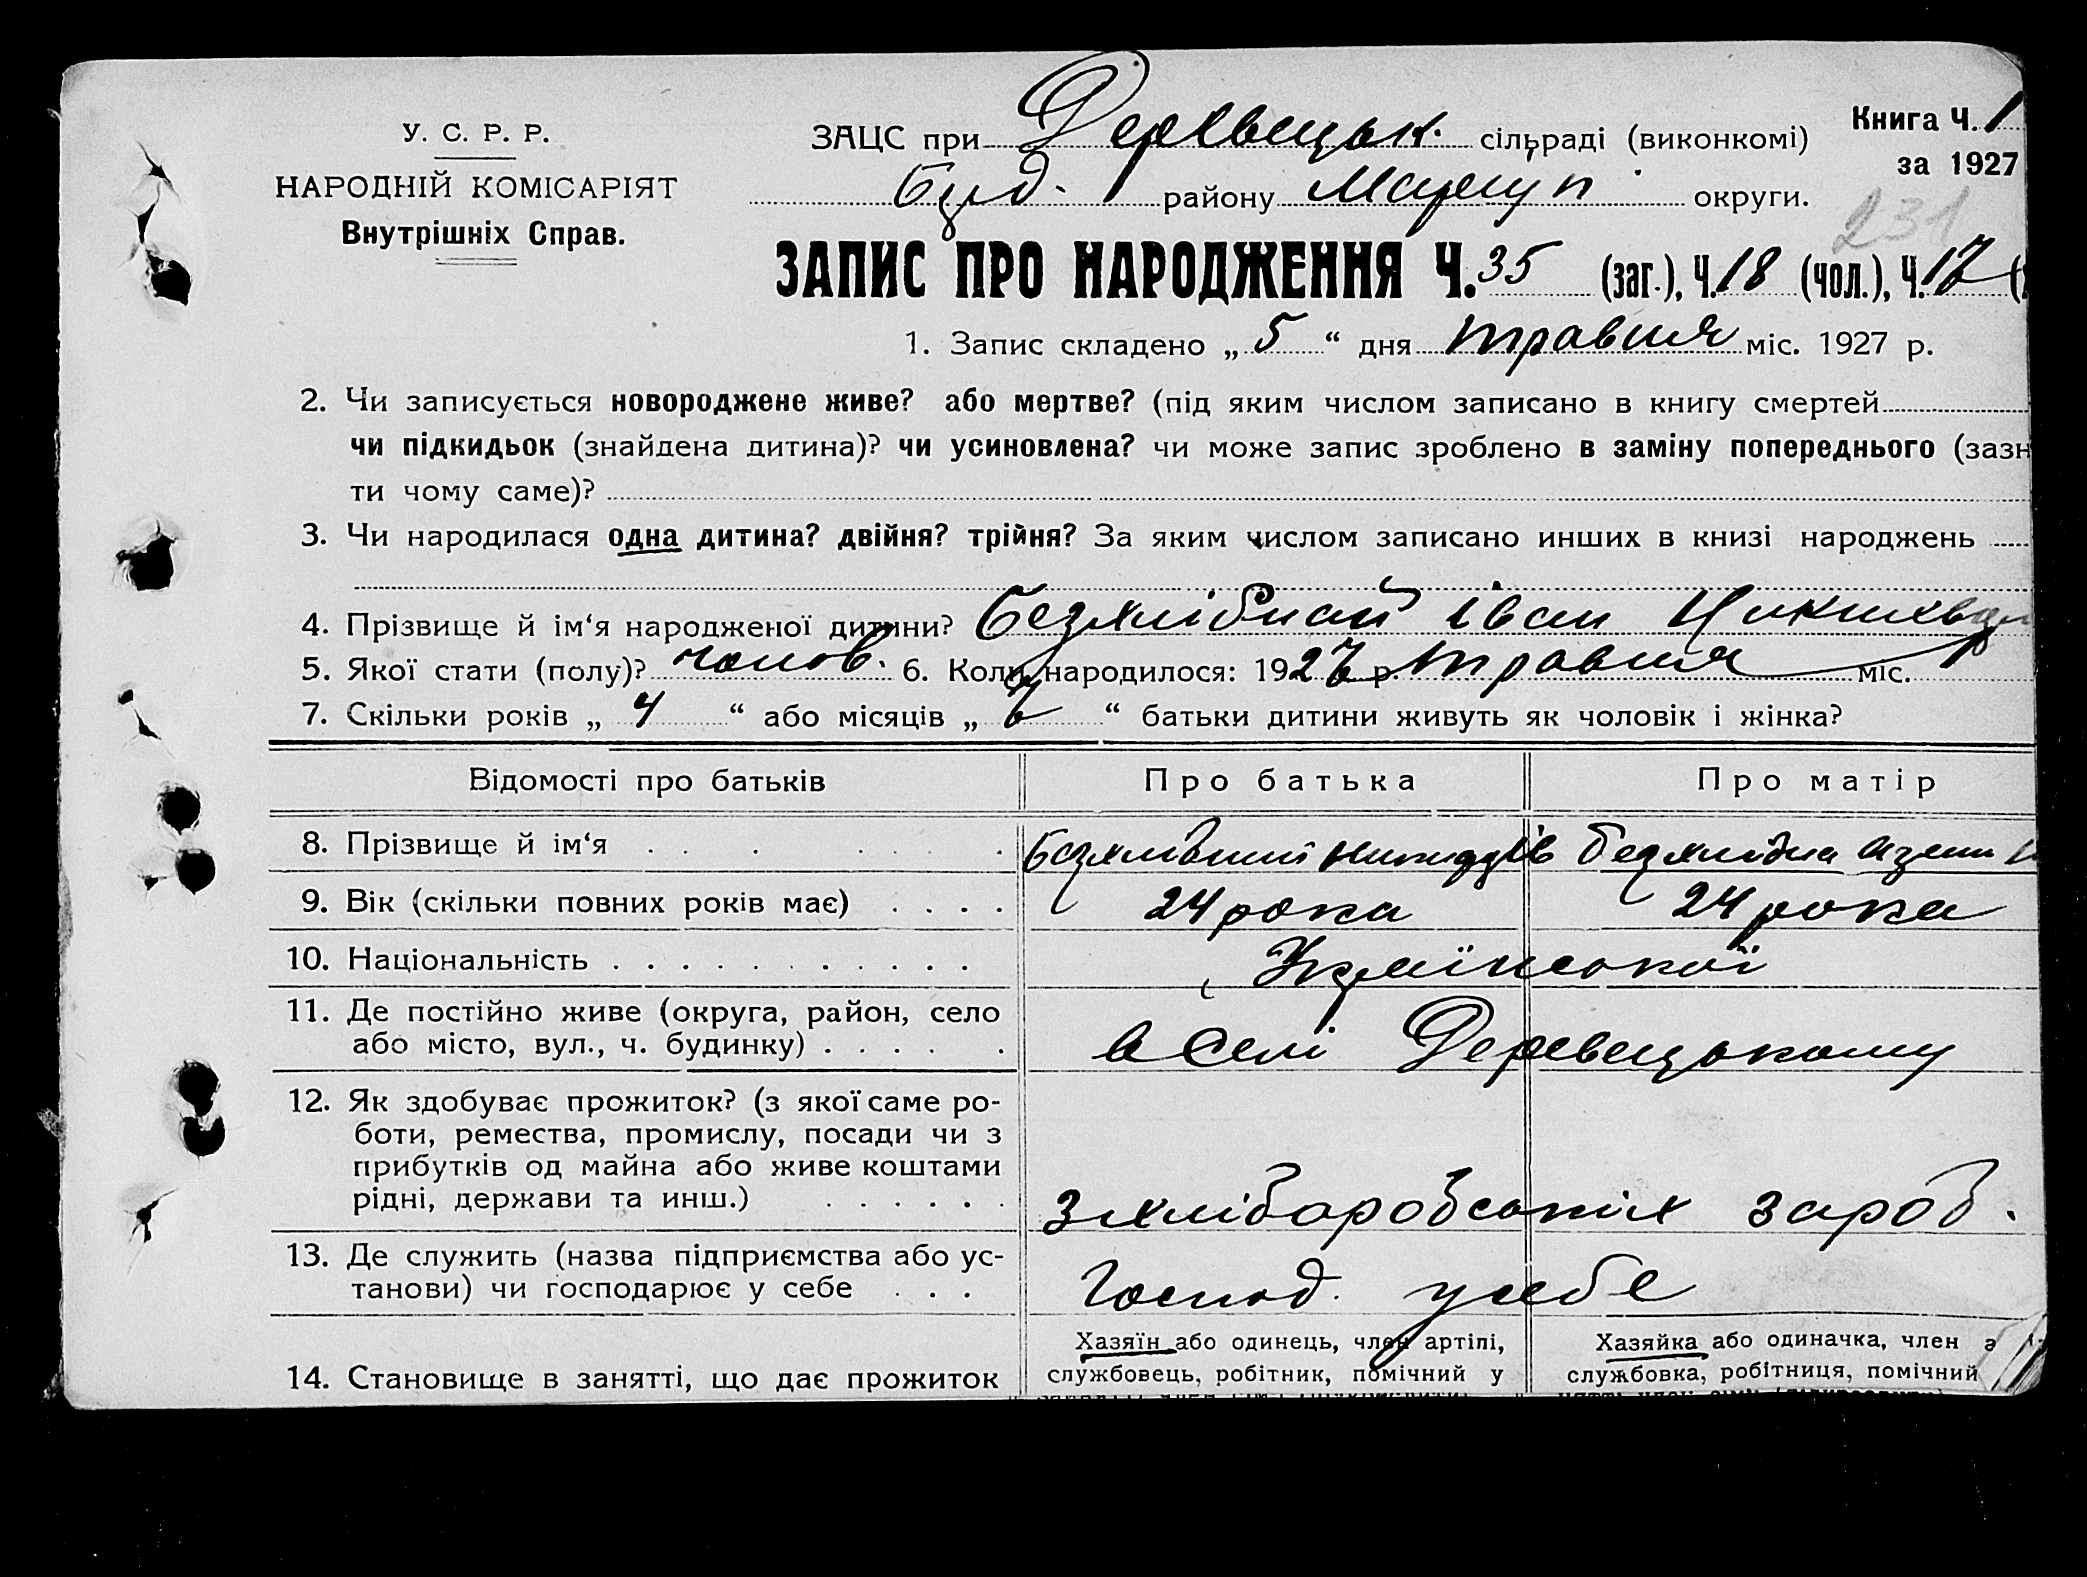 У. С. Р. Р.
НАРОДНІЙ КОМІСАРІЯТ
Внутрішніх Справ.
Книга Ч. 1
за 1927
ЗАЦС при Деревецьк. сільраді (виконкомі)
Буд. району Маріуп. округи.
231
ЗАПИС ПРО НАРОДЖЕННЯ Ч. 35 (заг.), Ч. 18 (чол.), Ч. 17
1. Запис складено „ 5 “ дня травня міс. 1927 р.
2. Чи записується новороджене живе? або мертве? (під яким числом записано в книгу смертей
чи підкидьок (знайдена дитина)? чи усиновлена? чи може запис зроблено в заміну попереднього (зазн
ти чому саме)?
3. Чи народилася одна дитина? двійня? трійня? За яким числом записано инших в книзі народжень
4. Прізвище й ім‘я народженої дитини? Безхлібний Іван
5. Якої стати (полу)? чолов. 6. Коли народилося: 1927 р. травня міс.
7. Скільки років „ 4 “ або місяців „ “ батьки дитини живуть як чоловік і жінка?
Відомості про батьків Про батька Про матір
8. Прізвище й ім‘я Безхлібний Безхлібна
9. Вік (скільки повних років має) 24 рока 24 рока
10. Національність Української
11. Де постійно живе (округа, район, село
або місто, вул., ч. будинку) в Селі Деревецькому
12. Як здобуває прожиток? (з якої саме ро-
боти, ремества, промислу, посади чи з
прибутків од майна або живе коштами
рідні, держави та инш.) З хліборобських зароб.
13. Де служить (назва підприємства або ус-
танови) чи господарює у себе Господ. у себе
14. Становище в занятті, що дає прожиток
Хазяїн або одинець, член артілі,
службовець, робітник, помічний у
Хазяйка або одиначка, член а
службовка, робітниця, помічний